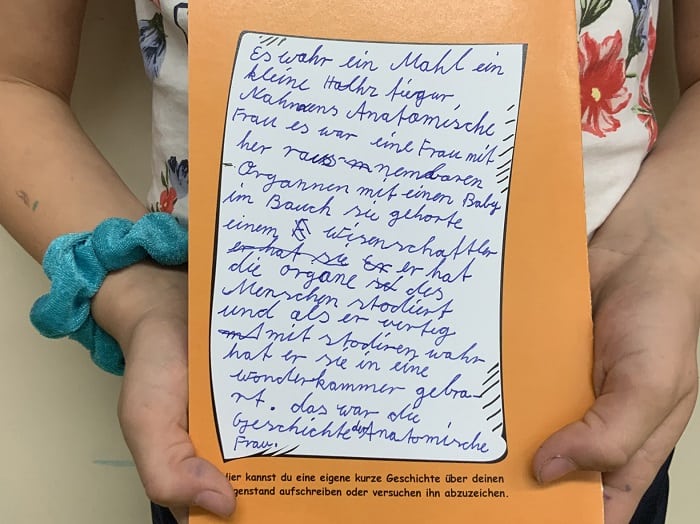 Es wahr ein Mahl ein
kleine Holhz fiegur,
Nahmens Anatomische
Frau es war eine Frau mit
her raus nembaren
Organnen mit einen Baby
im Bauch sie gehörte
einem wisenschaftler
er hat sie er er hat
die organe des
Menschen stodiert
und als er vertig
mit stodiren wahr
hat er sie in eine
wonderkammer gebra-
rt. das war die
Geschichte der Anatomische
Frau.
Hier kannst du eine eigene kurze Geschichte über deinen
genstand aufschreiben oder versuchen ihn abzuzeichen.